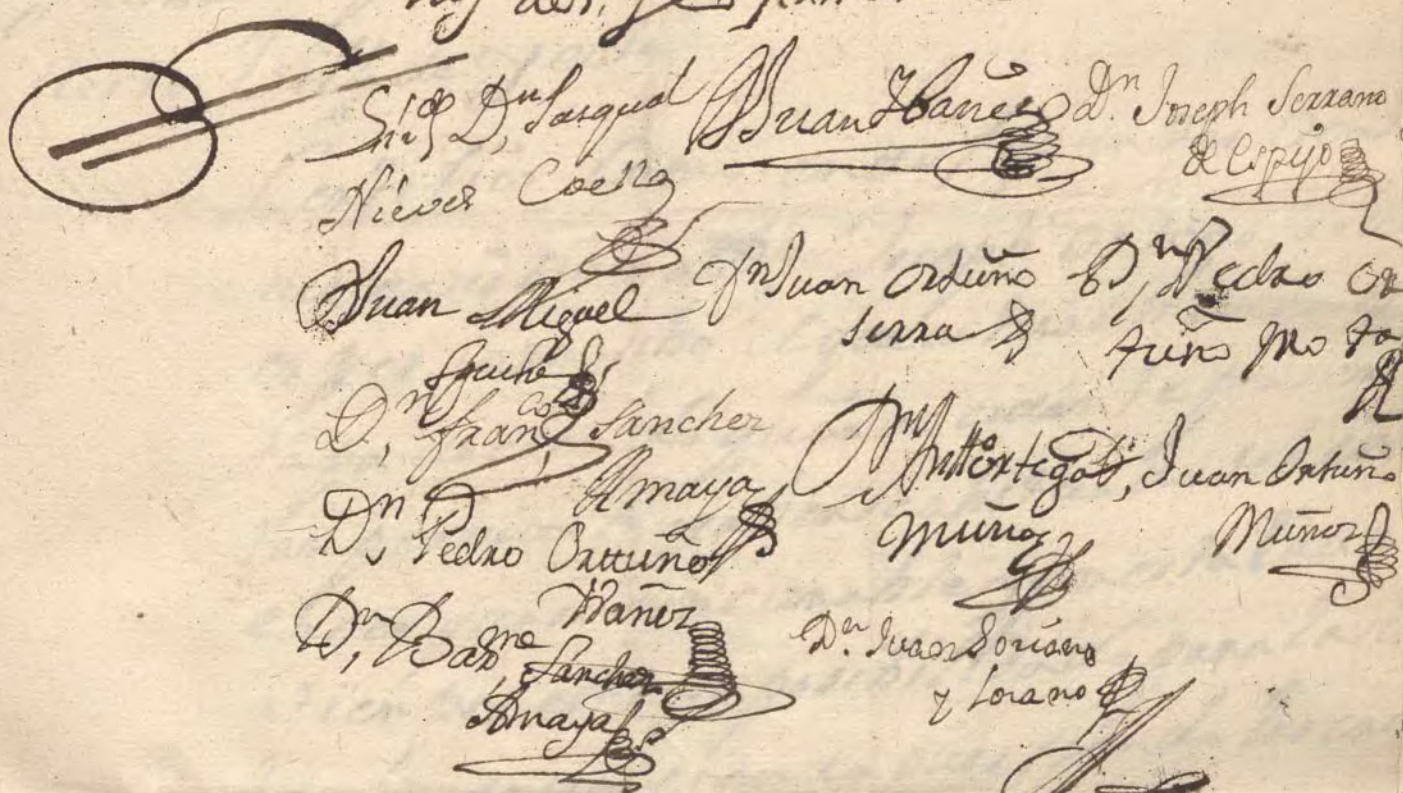 Lizdo Dn, Pasqual
Nieves Coello
Juan Ibañez
Dn. Joseph Serrano
de Espejo
Juan Miguel
Dn Juan Ortuño
Serra
Dn, Pedro Or
tuño Mo
Dn, Franco, Sanchez
Amaya
Dn Antto Ortega
Muñoz
D, Juan Ortuño
Muñoz
Dn, Pedro Orttuño
Ybañez
Dn, Barme Sanchez
Amaya
Dn. Juan Soriano
y Lozano